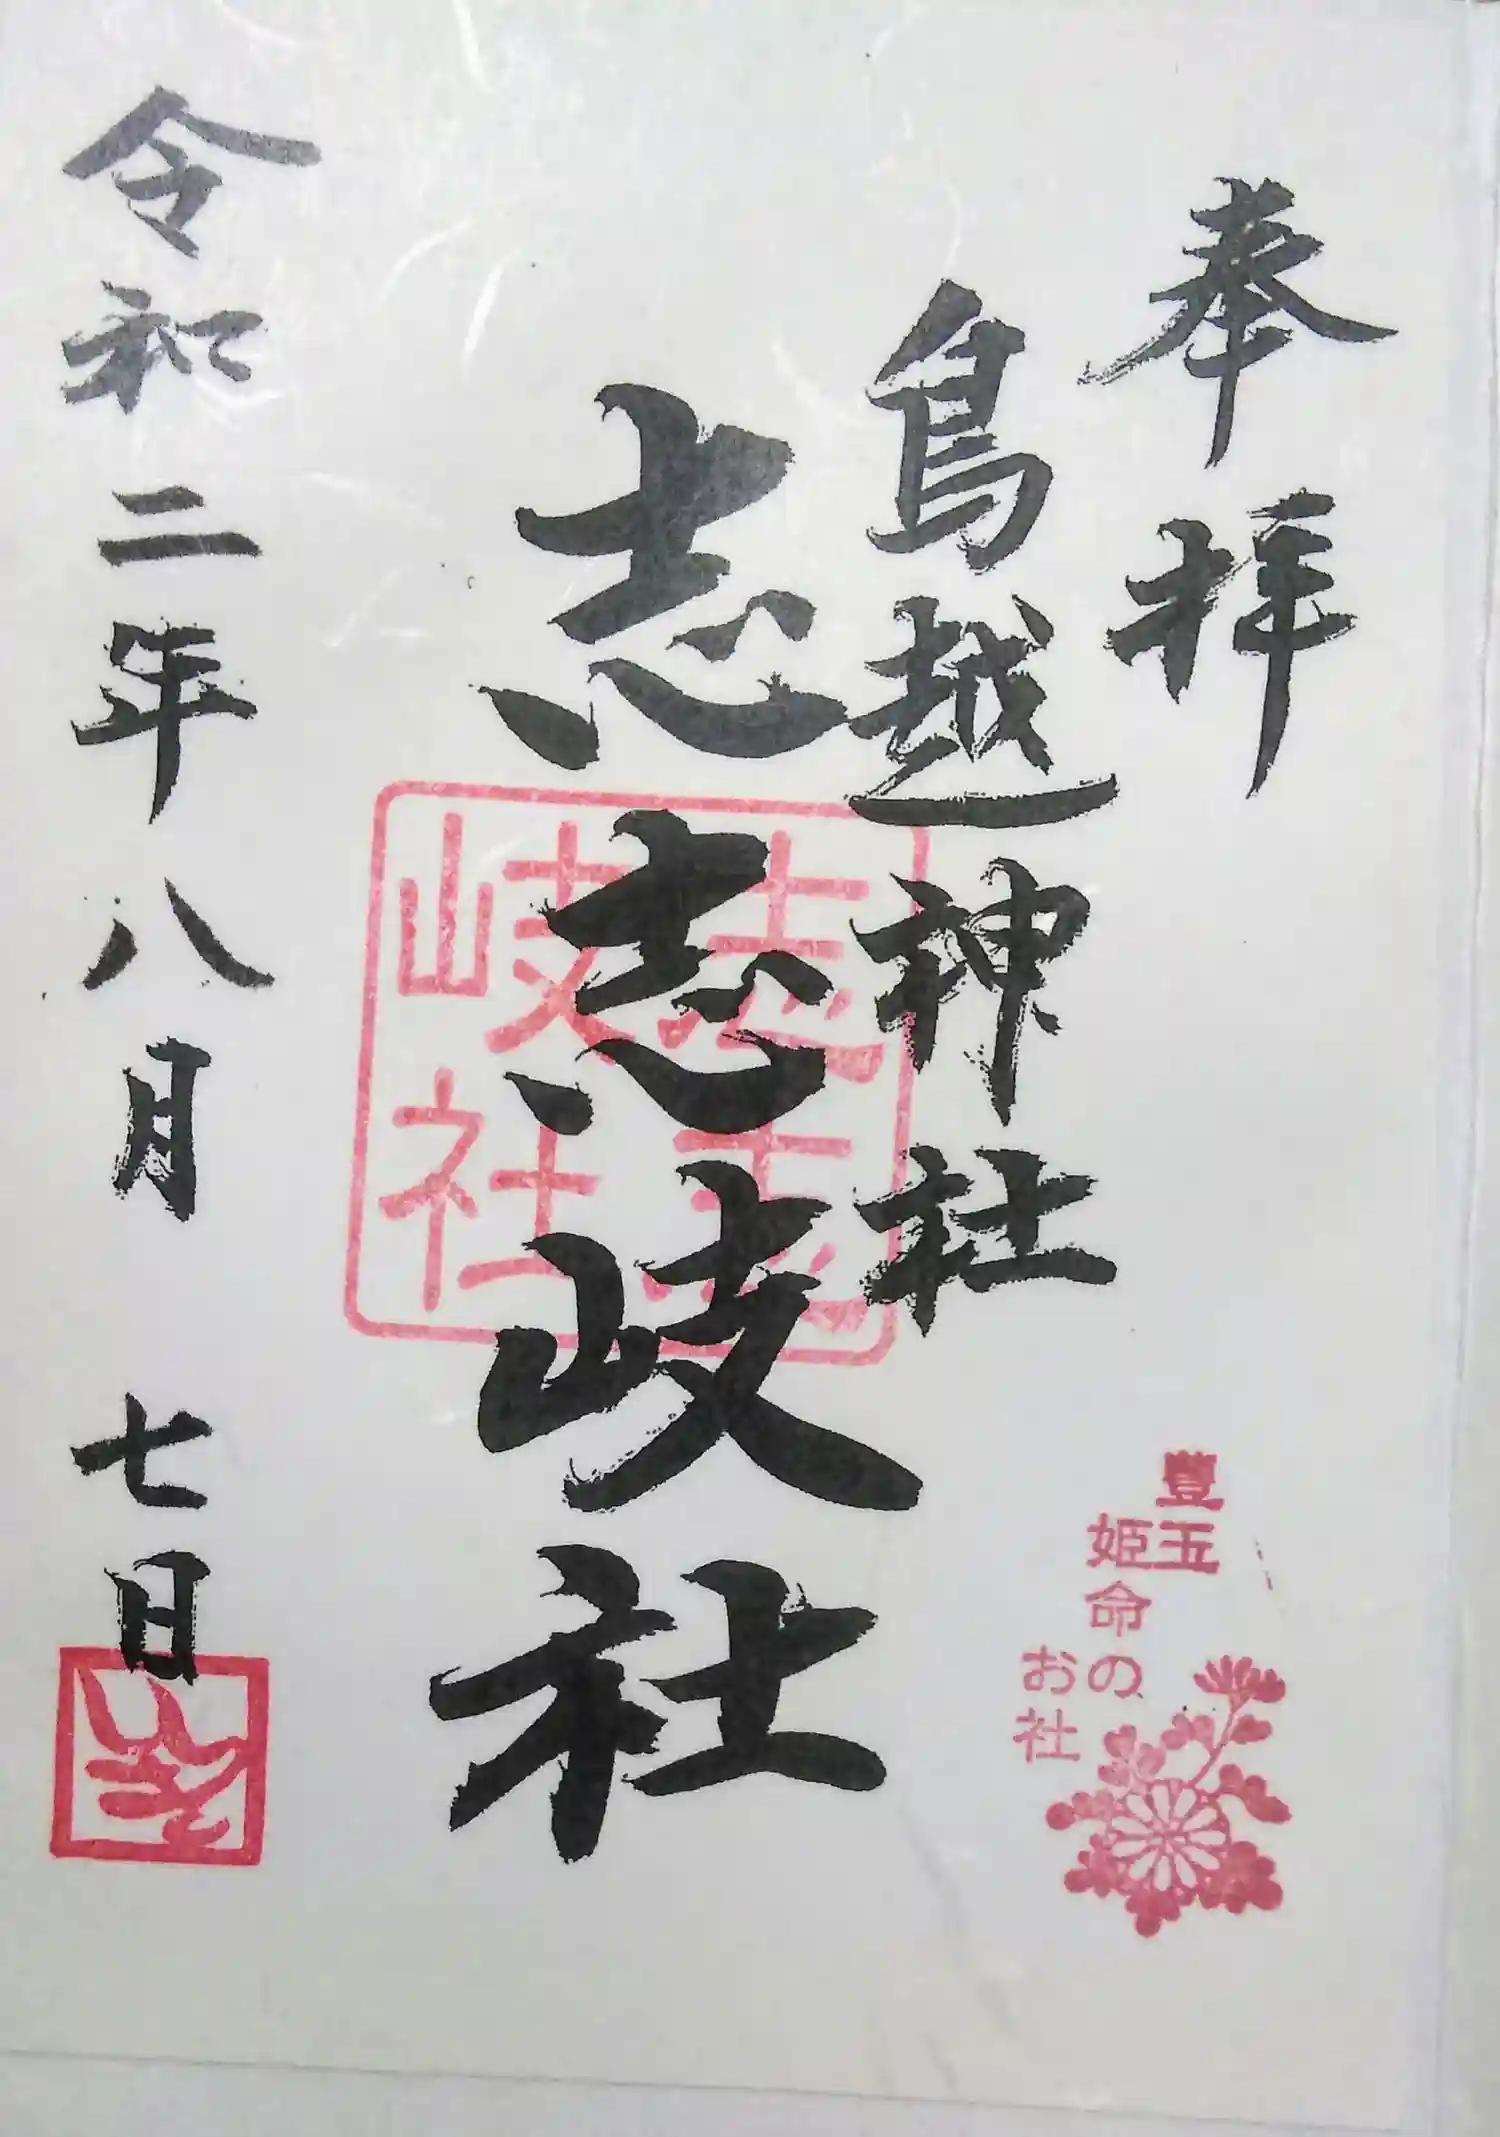 奉拝
鳥越神社
志志岐社
志志
岐社
令和二年八月七日
豊玉
姫命の
お社